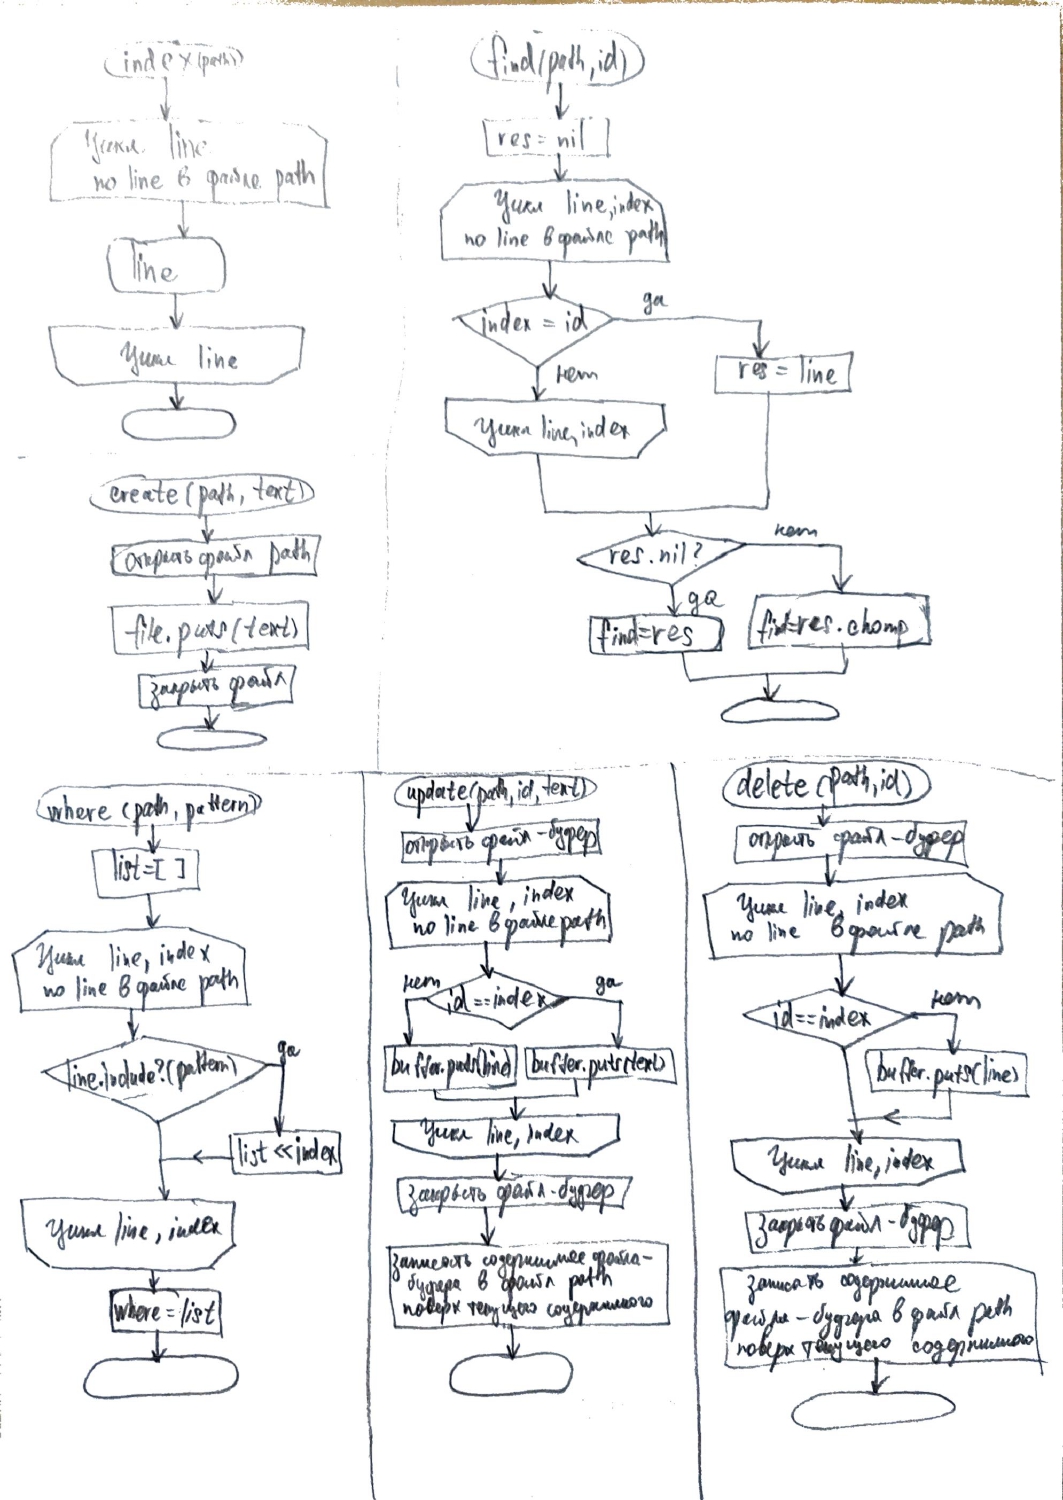 index(path)
Цикл line
по line в файле path
line
Цикл line
create(path, text)
открыть файл path
file.puts(text)
закрыть файл
find(path, id)
res = nil
Цикл line, index
по line в файле path
index = id
да
нет
res = line
Цикл line, index
res.nil?
нет
да
find=res
find=res.chomp
where (path, pattern)
list=[ ]
Цикл line, index
по line в файле path
line.include?(pattern)
да
list << index
Цикл line, index
where = list
update(path, id, text)
открыть файл-буфер
Цикл line, index
по line в файле path
нет
id==index
да
buffer.puts(line)
buffer.puts(text)
Цикл line, index
Закрыть файл-буфер
Записать содержимое файла-
буфера в файл path
поверх текущего содержимого
delete (path, id)
открыть файл-буфер
Цикл line, index
по line в файле path
id==index
нет
buffer.puts(line)
Цикл line, index
Закрыть файл-буфер
Записать содержимое
файла-буфера в файл path
поверх текущего содержимого